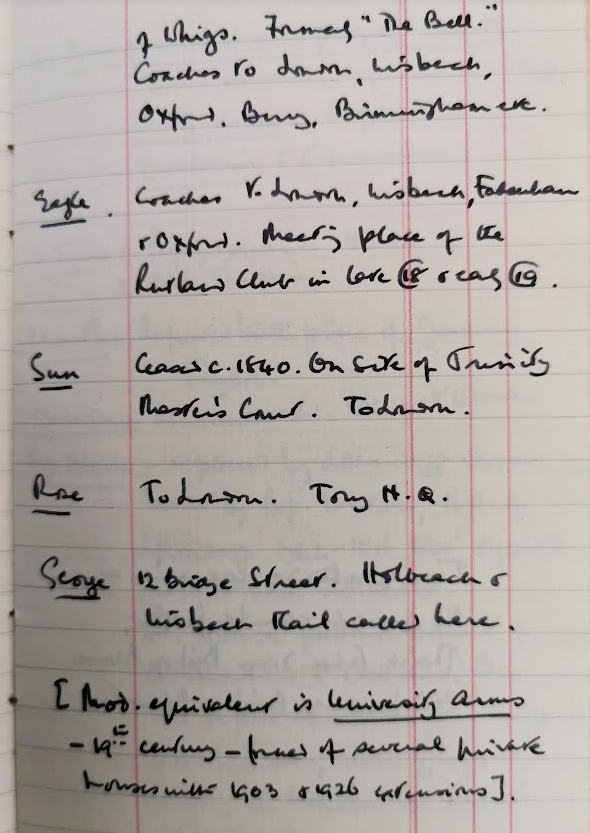 of Whigs. Formerly "The Bell."
Coaches to London, Wisbech,
Oxford, Bury, Birmingham etc.
Eagle. Coaches to London, Wisbech, Fakenham
& Oxford. Meeting place of the
Rutland Club in late 18 & early 19.
Sun Ceased c. 1840. On site of Trinity
Master's Court. To London.
Rose To London. Tory H.Q.
George 12 Bridge Street. Holbeach &
Wisbech Mail called here.
[Mod. equivalent is University Arms
- 19th century - formed of several private
houses with 1903 & 1926 extensions].